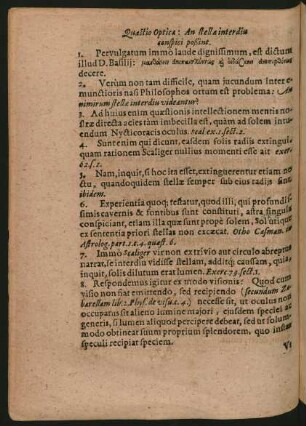 Quæstio Optica: An stella interdiu
conspici possint.
1. Pervulgatum immo laude dignissimum, est dictum
illud D. Basilij:
decere.
2. Verùm non tam difficile, quam jucundum inter e-
munctioris nasi Philosophos ortum est problema: An
nimirum stellæ interdiu videantur?
3. Ad hujus enim quæstionis intellectionem mentis no-
stræ directa acies tam imbecilla est, quàm ad solem intu-
endum Nycticoracis oculus. scal. ex. 1. sect. 1.
4. Sunt enim qui dicunt, easdem solis radijs extingui
quam rationem Scaliger nullius momenti esse ait exer.
62. s. 1.
5. Nam, inquit, si hoc ita esset, extinguerentur etiam no-
ctu, quandoquidem stellæ semper sub ejus radijs sint
ibidem.
6. Experientia quoq; testatur, quod illi, qui profundis-
simis cavernis & fontibus sunt constituti, astra singula
conspiciant, etiam illa quæ sunt propè solem, sol utique
ex sententia priori stellas non excæcat. Otho Casman. in
Astrolog. part. 1. c. 4. quæst. 6.
7. Immò Scaliger vir non ex trivio aut circulo abreptus
narrat, se interdiu vidisse stellam, addit causam, quia,
inquit, solis dilutum erat lumen. Exerc. 79. sect. 1.
8. Respondemus igitur ex modo visionis: Quod cum
visio non fiat emittendo, sed recipiendo (secundum Za-
barellam lib: 2. Phys. de visu s. 4.) necesse sit, ut oculus non
occupatus sit alieno lumine majori, ejusdem speciei ac
generis, si lumen aliquod percipere debeat, sed ut solum-
modo obtineat suum proprium splendorem. quo instar
speculi recipiat speciem.